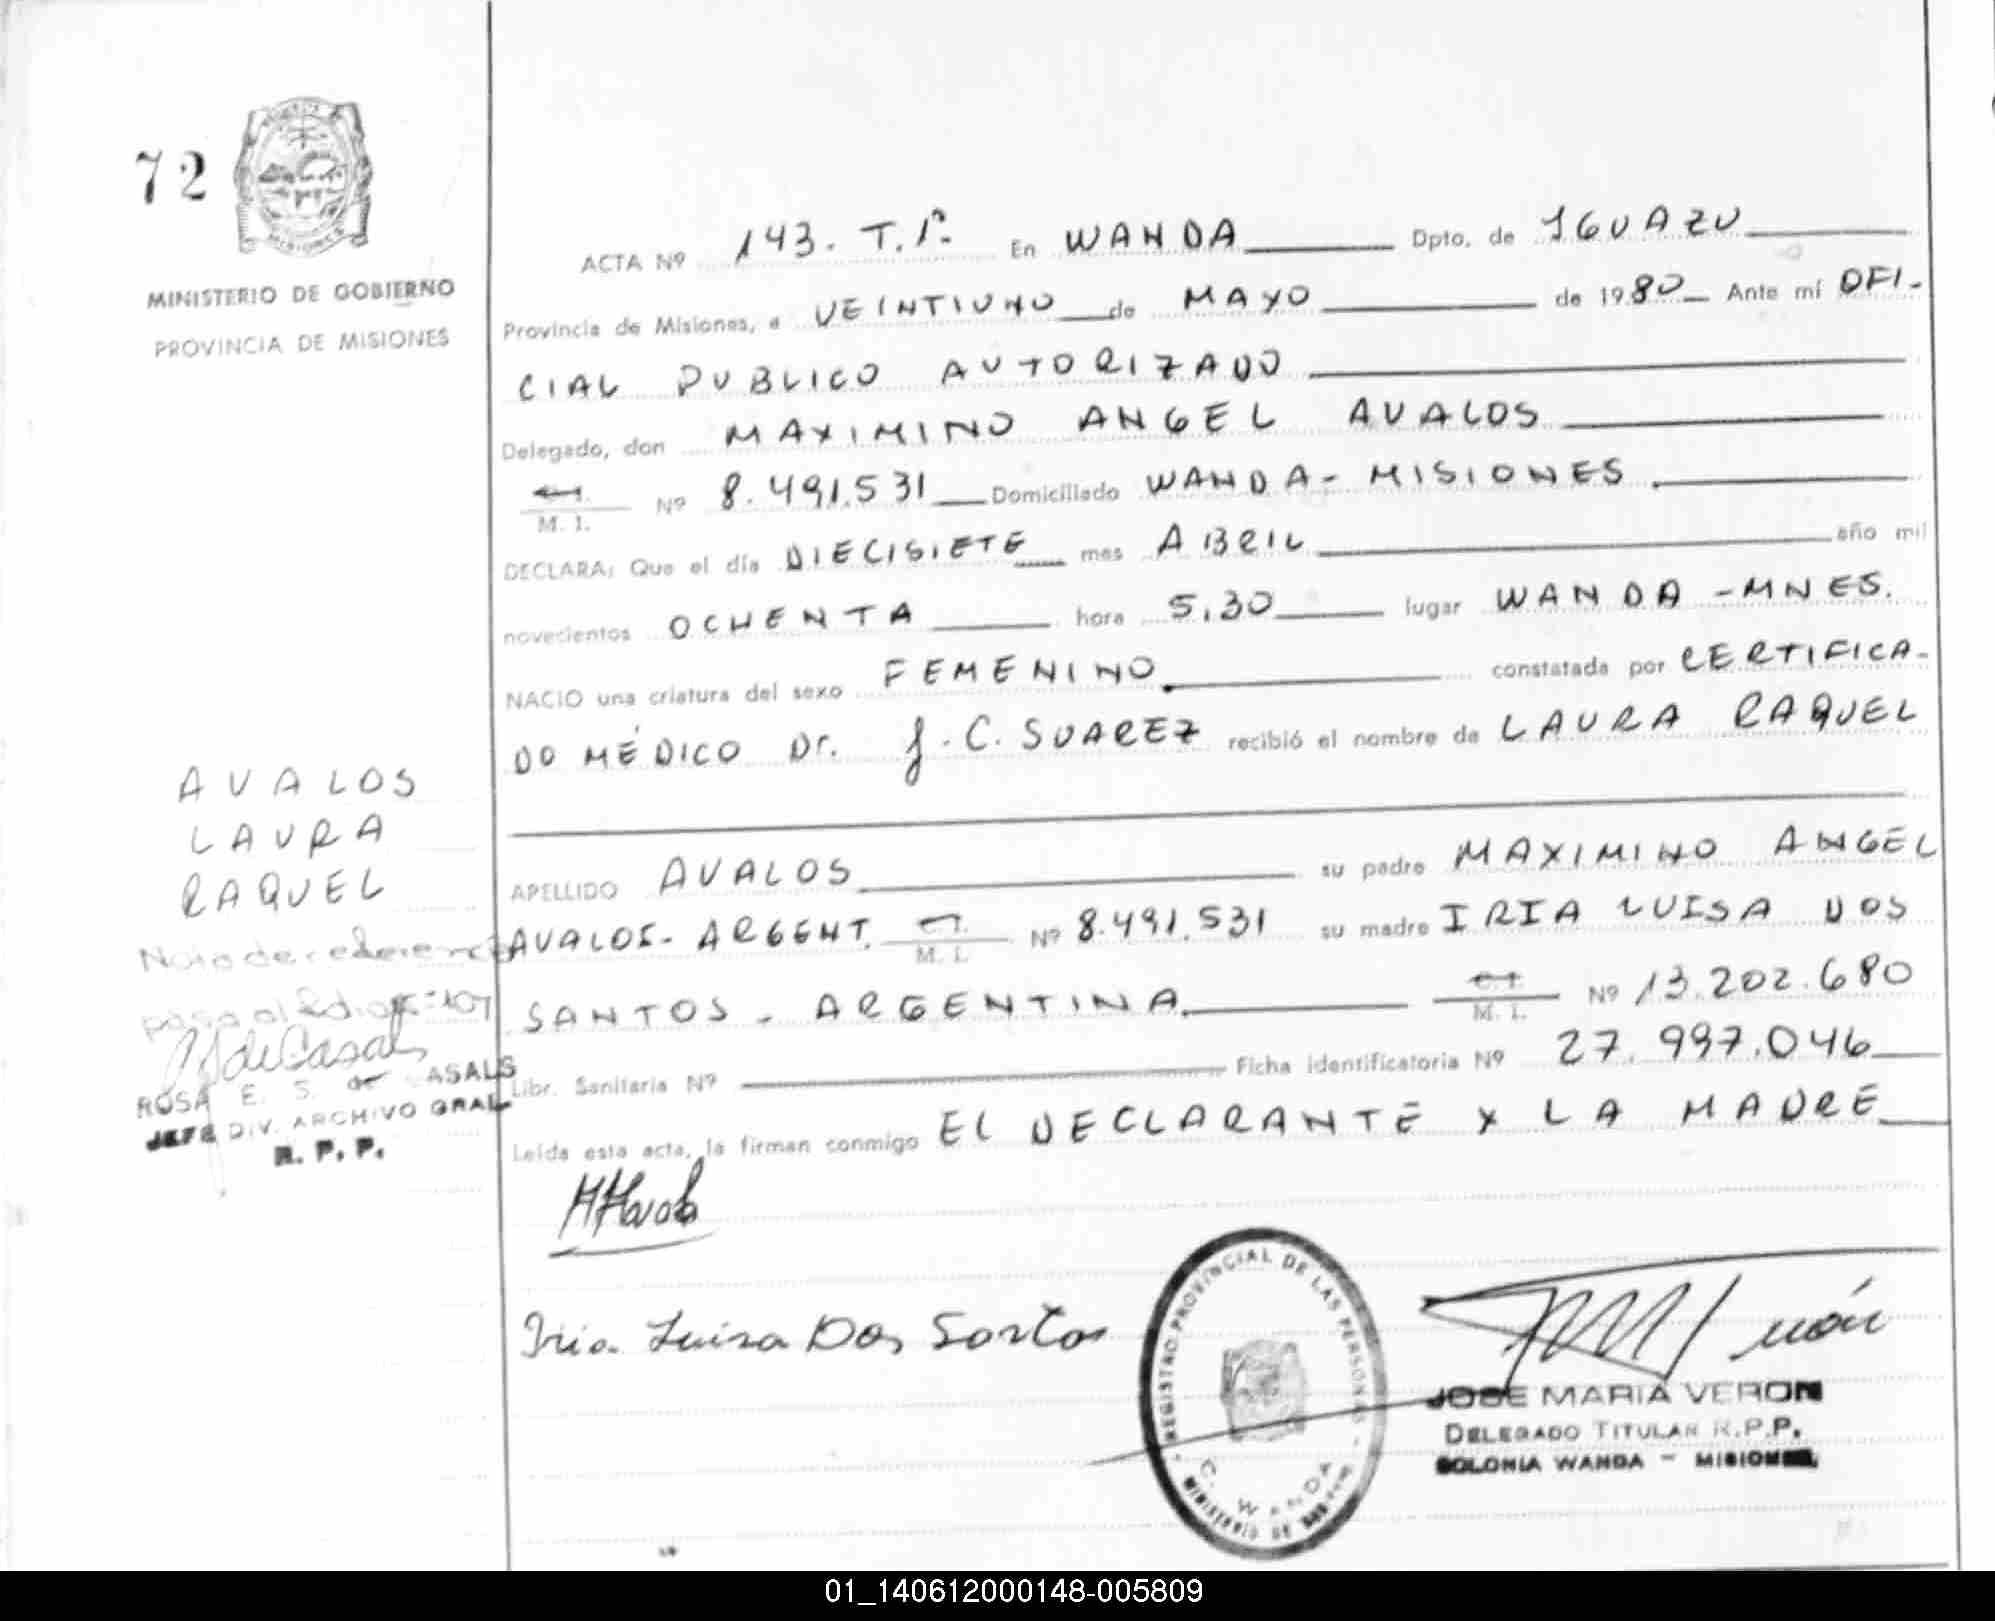 72
MISIONES
MINISTERIO DE GOBIERNO
PROVINCIA DE MISIONES
ACTA Nº 143. T. 1º. En WANDA Dpto. de IGUAZU
Provincia de Misiones, a VEINTIUNO de MAYO de 1980 Ante mí OFI-
CIAL PUBLICO AUTORIZADO
Delegado, don MAXIMINO ANGEL AVALOS
C.I.
M. I. Nº 8.491.531 Domiciliado WANDA - MISIONES
DECLARA: Que el día DIECISIETE mes ABRIL año mil
novecientos OCHENTA hora 5,30 lugar WANDA - MNES.
NACIO una criatura del sexo FEMENINO constatada por CERTIFICA-
DO MÉDICO Dr. J. C. SUAREZ recibió el nombre de LAURA RAQUEL
APELLIDO AVALOS su padre MAXIMINO ANGEL
AVALOS - ARGENT. C.I.
M. I. Nº 8.491.531 su madre IRIA LUISA DOS
SANTOS - ARGENTINA. C.I.
M. I. Nº 13.202.680
Libr. Sanitaria Nº Ficha identificatoria Nº 27.997.046
Leída esta acta, la firman conmigo EL DECLARANTE Y LA MADRE
AVALOS
LAURA
RAQUEL
Nota de referencia
pasa al folio 107
ROSA E. S. de CASALS
JEFE DIV. ARCHIVO GRAL
R. P. P.
MAvalos
Iria Luisa Dos Santos
REGISTRO PROVINCIAL DE LAS PERSONAS
C. WANDA
MINISTERIO DE
JOSE MARIA VERON
DELEGADO TITULAR R.P.P.
COLONIA WANDA - MISIONES
01_140612000148-005809